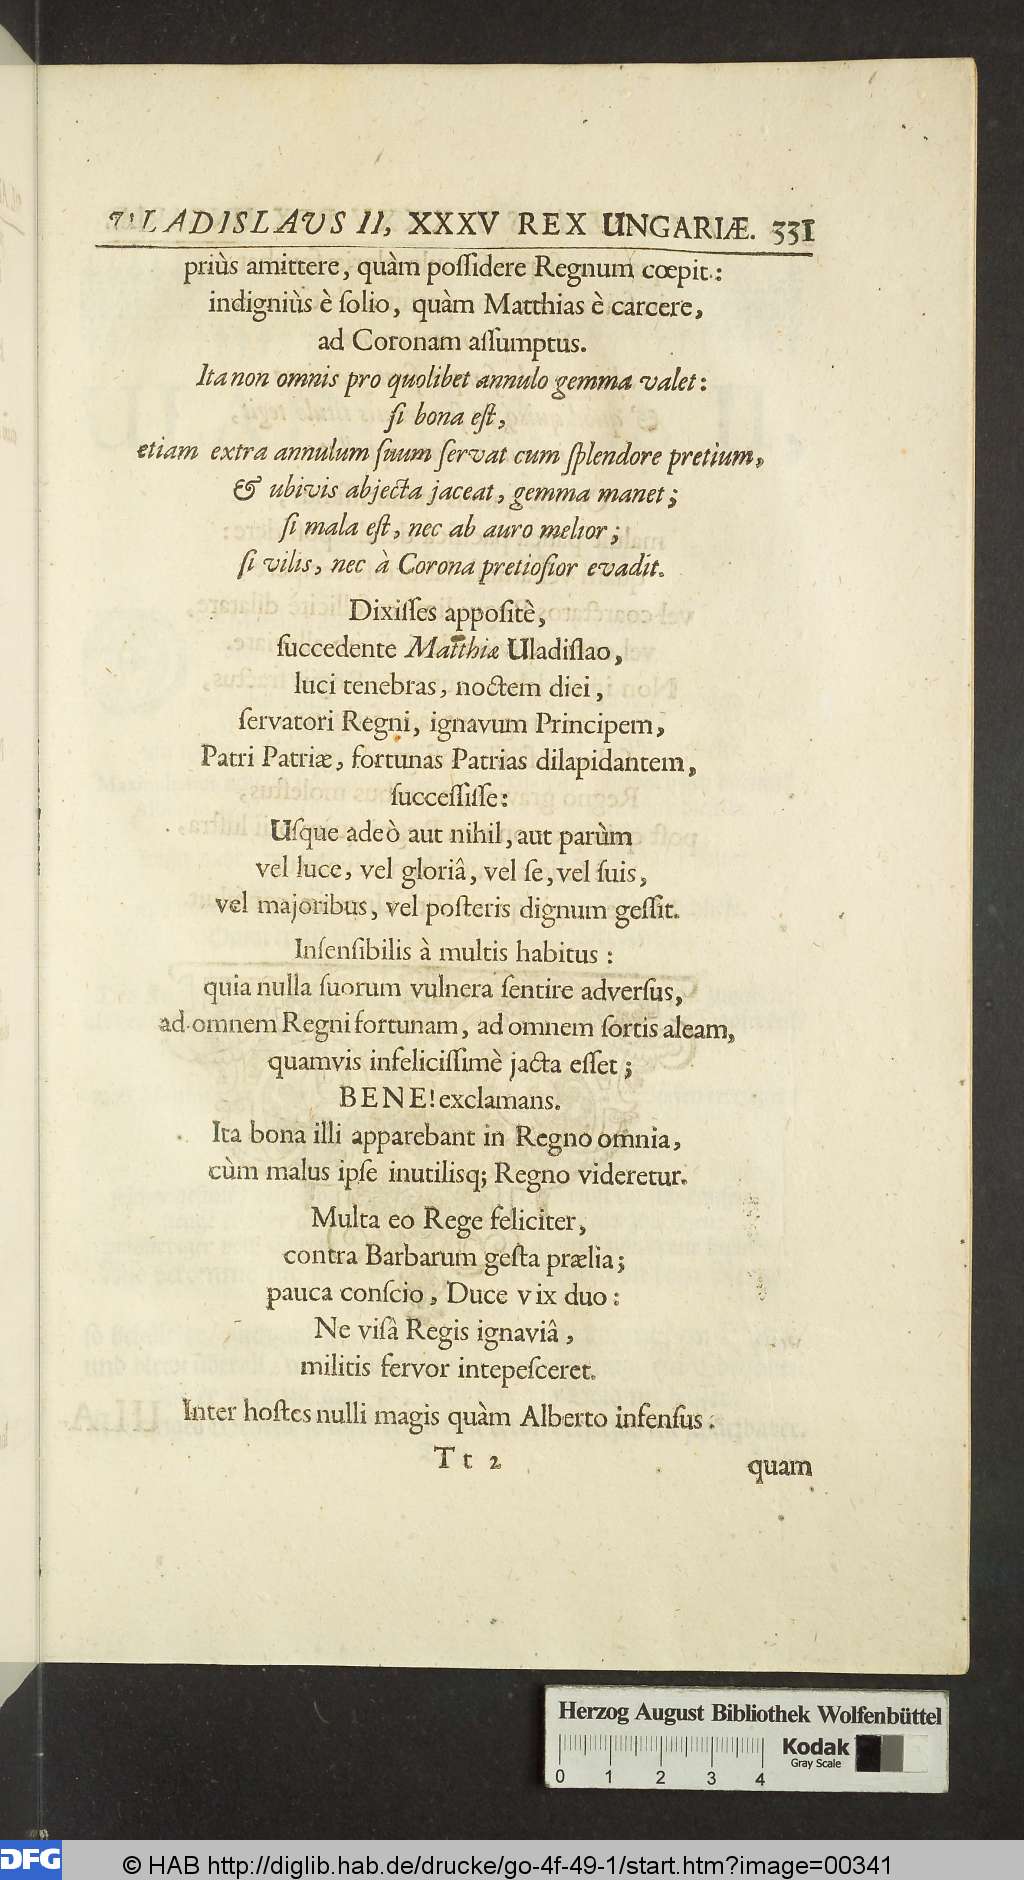 VLADISLAVS II, XXXV REX UNGARIÆ. 331
priùs amittere, quàm poſſidere Regnum cœpit:
indigniùs è ſolio, quàm Matthias è carcere,
ad Coronam aſſumptus.
Ita non omnis pro quolibet annulo gemma valet:
ſi bona eſt,
etiam extra annulum ſuum ſervat cum ſplendore pretium,
& ubivis abjecta jaceat, gemma manet;
ſi mala eſt, nec ab auro melior;
ſi vilis, nec à Corona pretioſior evadit.
Dixiſſes appoſitè,
ſuccedente Matthiæ Uladiſlao,
luci tenebras, noctem diei,
ſervatori Regni, ignavum Principem,
Patri Patriæ, fortunas Patrias dilapidantem,
ſucceſſiſſe:
Uſque adeò aut nihil, aut parùm
vel luce, vel gloriâ, vel ſe, vel ſuis,
vel majoribus, vel poſteris dignum geſſit.
Inſenſibilis à multis habitus:
quia nulla ſuorum vulnera ſentire adverſus,
ad omnem Regni fortunam, ad omnem ſortis aleam,
quamvis infeliciſſimè jacta eſſet;
BENE! exclamans.
Ita bona illi apparebant in Regno omnia,
cùm malus ipſe inutilisq; Regno videretur.
Multa eo Rege feliciter,
contra Barbarum geſta prælia;
pauca conſcio, Duce vix duo:
Ne viſâ Regis ignaviâ,
militis fervor intepeſceret.
Inter hoſtes nulli magis quàm Alberto infenſus:
Tt 2
quam
Herzog August Bibliothek Wolfenbüttel
Kodak
Gray Scale
0 1 2 3 4
DFG
© HAB http://diglib.hab.de/drucke/go-4f-49-1/start.htm?image=00341